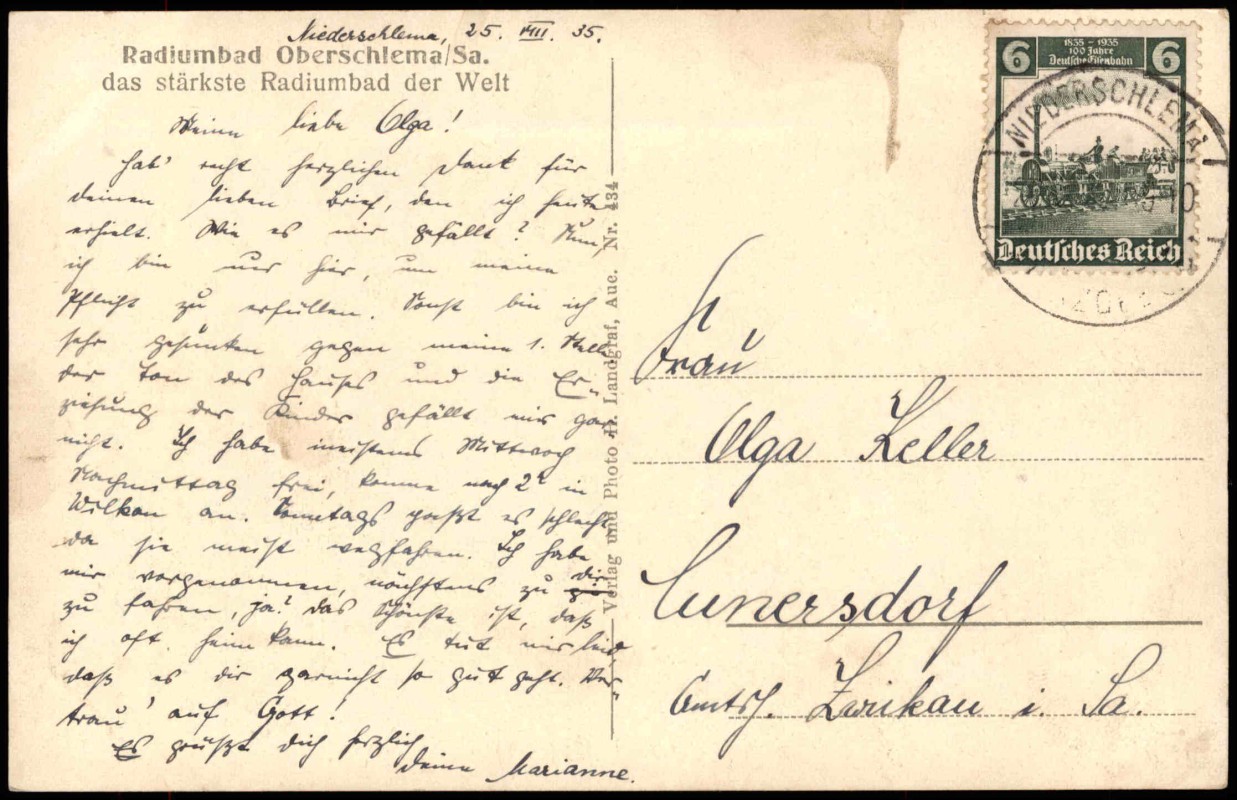 Niederschlema, 25. VIII. 35.
Radiumbad Oberschlema/Sa.
das stärkste Radiumbad der Welt
Meine liebe Olga!
Hab' recht herzlichen Dank für
deinen lieben Brief, den ich heute
erhielt. Wie es mir gefällt? Nun,
ich bin nur hier, um meine
Pflicht zu erfüllen. Sonst bin ich
sehr gesunken gegen meine 1. Stelle
der Ton des Hauses und die Er-
ziehung der Kinder gefällt mir gar
nicht. Ich habe meistens Mittwoch
Nachmittag frei, komme nach 2 in
Wilkau an. Sonntags passt es schlecht
da sie meist wegfahren. Ich habe
mir vorgenommen, nächstens zu dir
zu fahren, ja? Das Schönste ist, daß
ich oft heim kann. Es tut mir leid,
daß es dir garnicht so gut geht. Ver-
trau' auf Gott!
Es grüßt dich herzlich
deine Marianne.
Verlag und Photo H. Landgraf, Aue. Nr. 434
6 1835 - 1935 6
100 Jahre
Deutsche Eisenbahn
Deutsches Reich
NIEDERSCHLEMA
Frau
Olga Keller
Cunersdorf
Amtsh. Zwickau i. Sa.